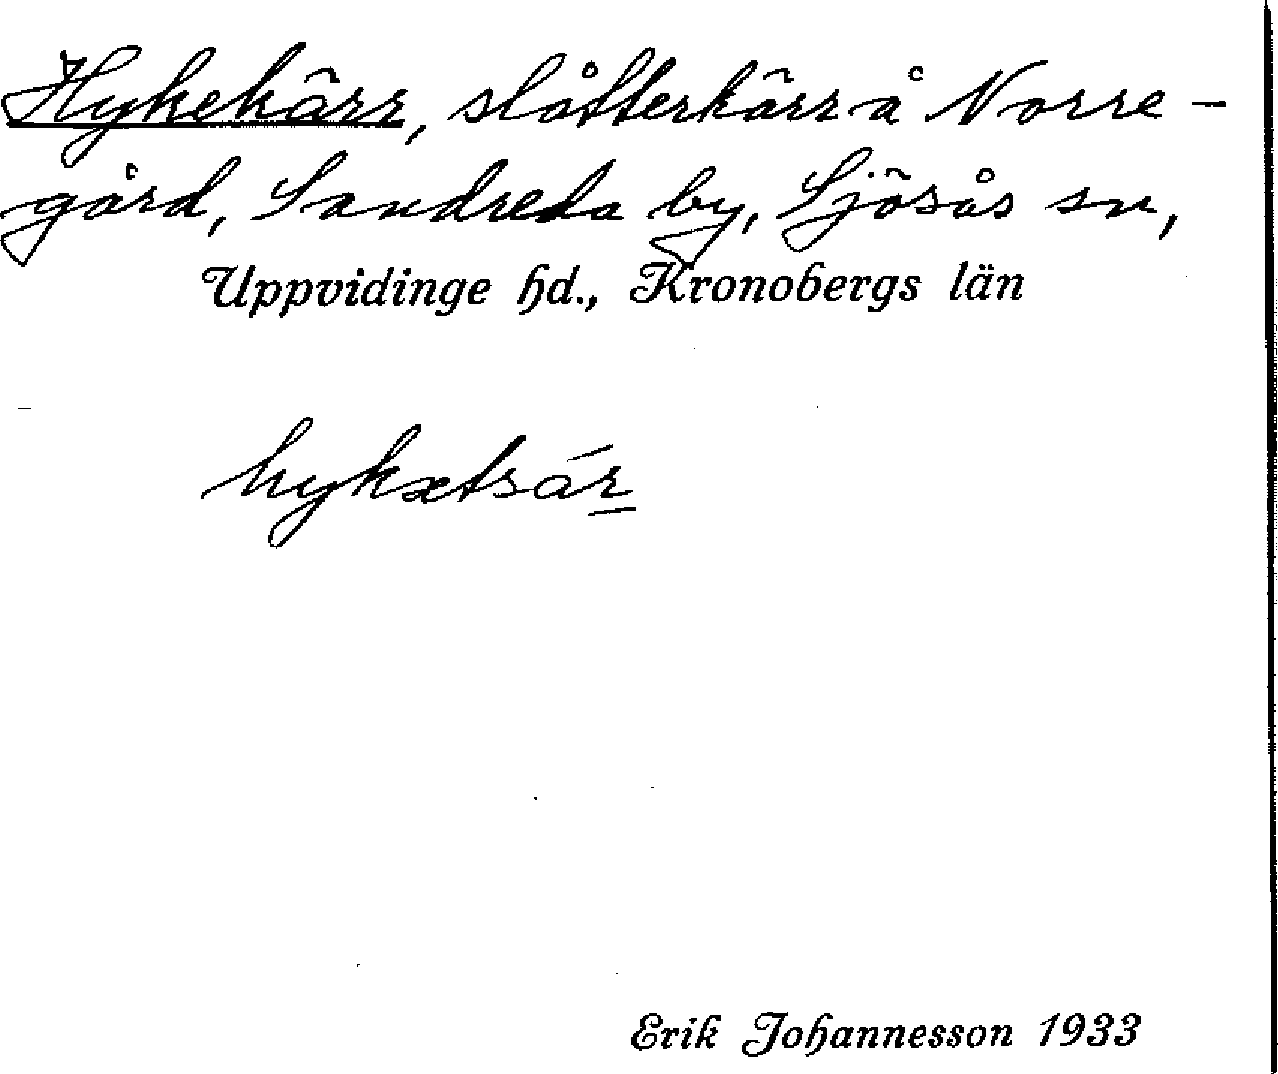 Hykekärr, slåtterkärr å Norre-
gård, Sandreda by, Sjösås sn,
Uppvidinge hd., Kronobergs län
hykætsár
Erik Johannesson 1933